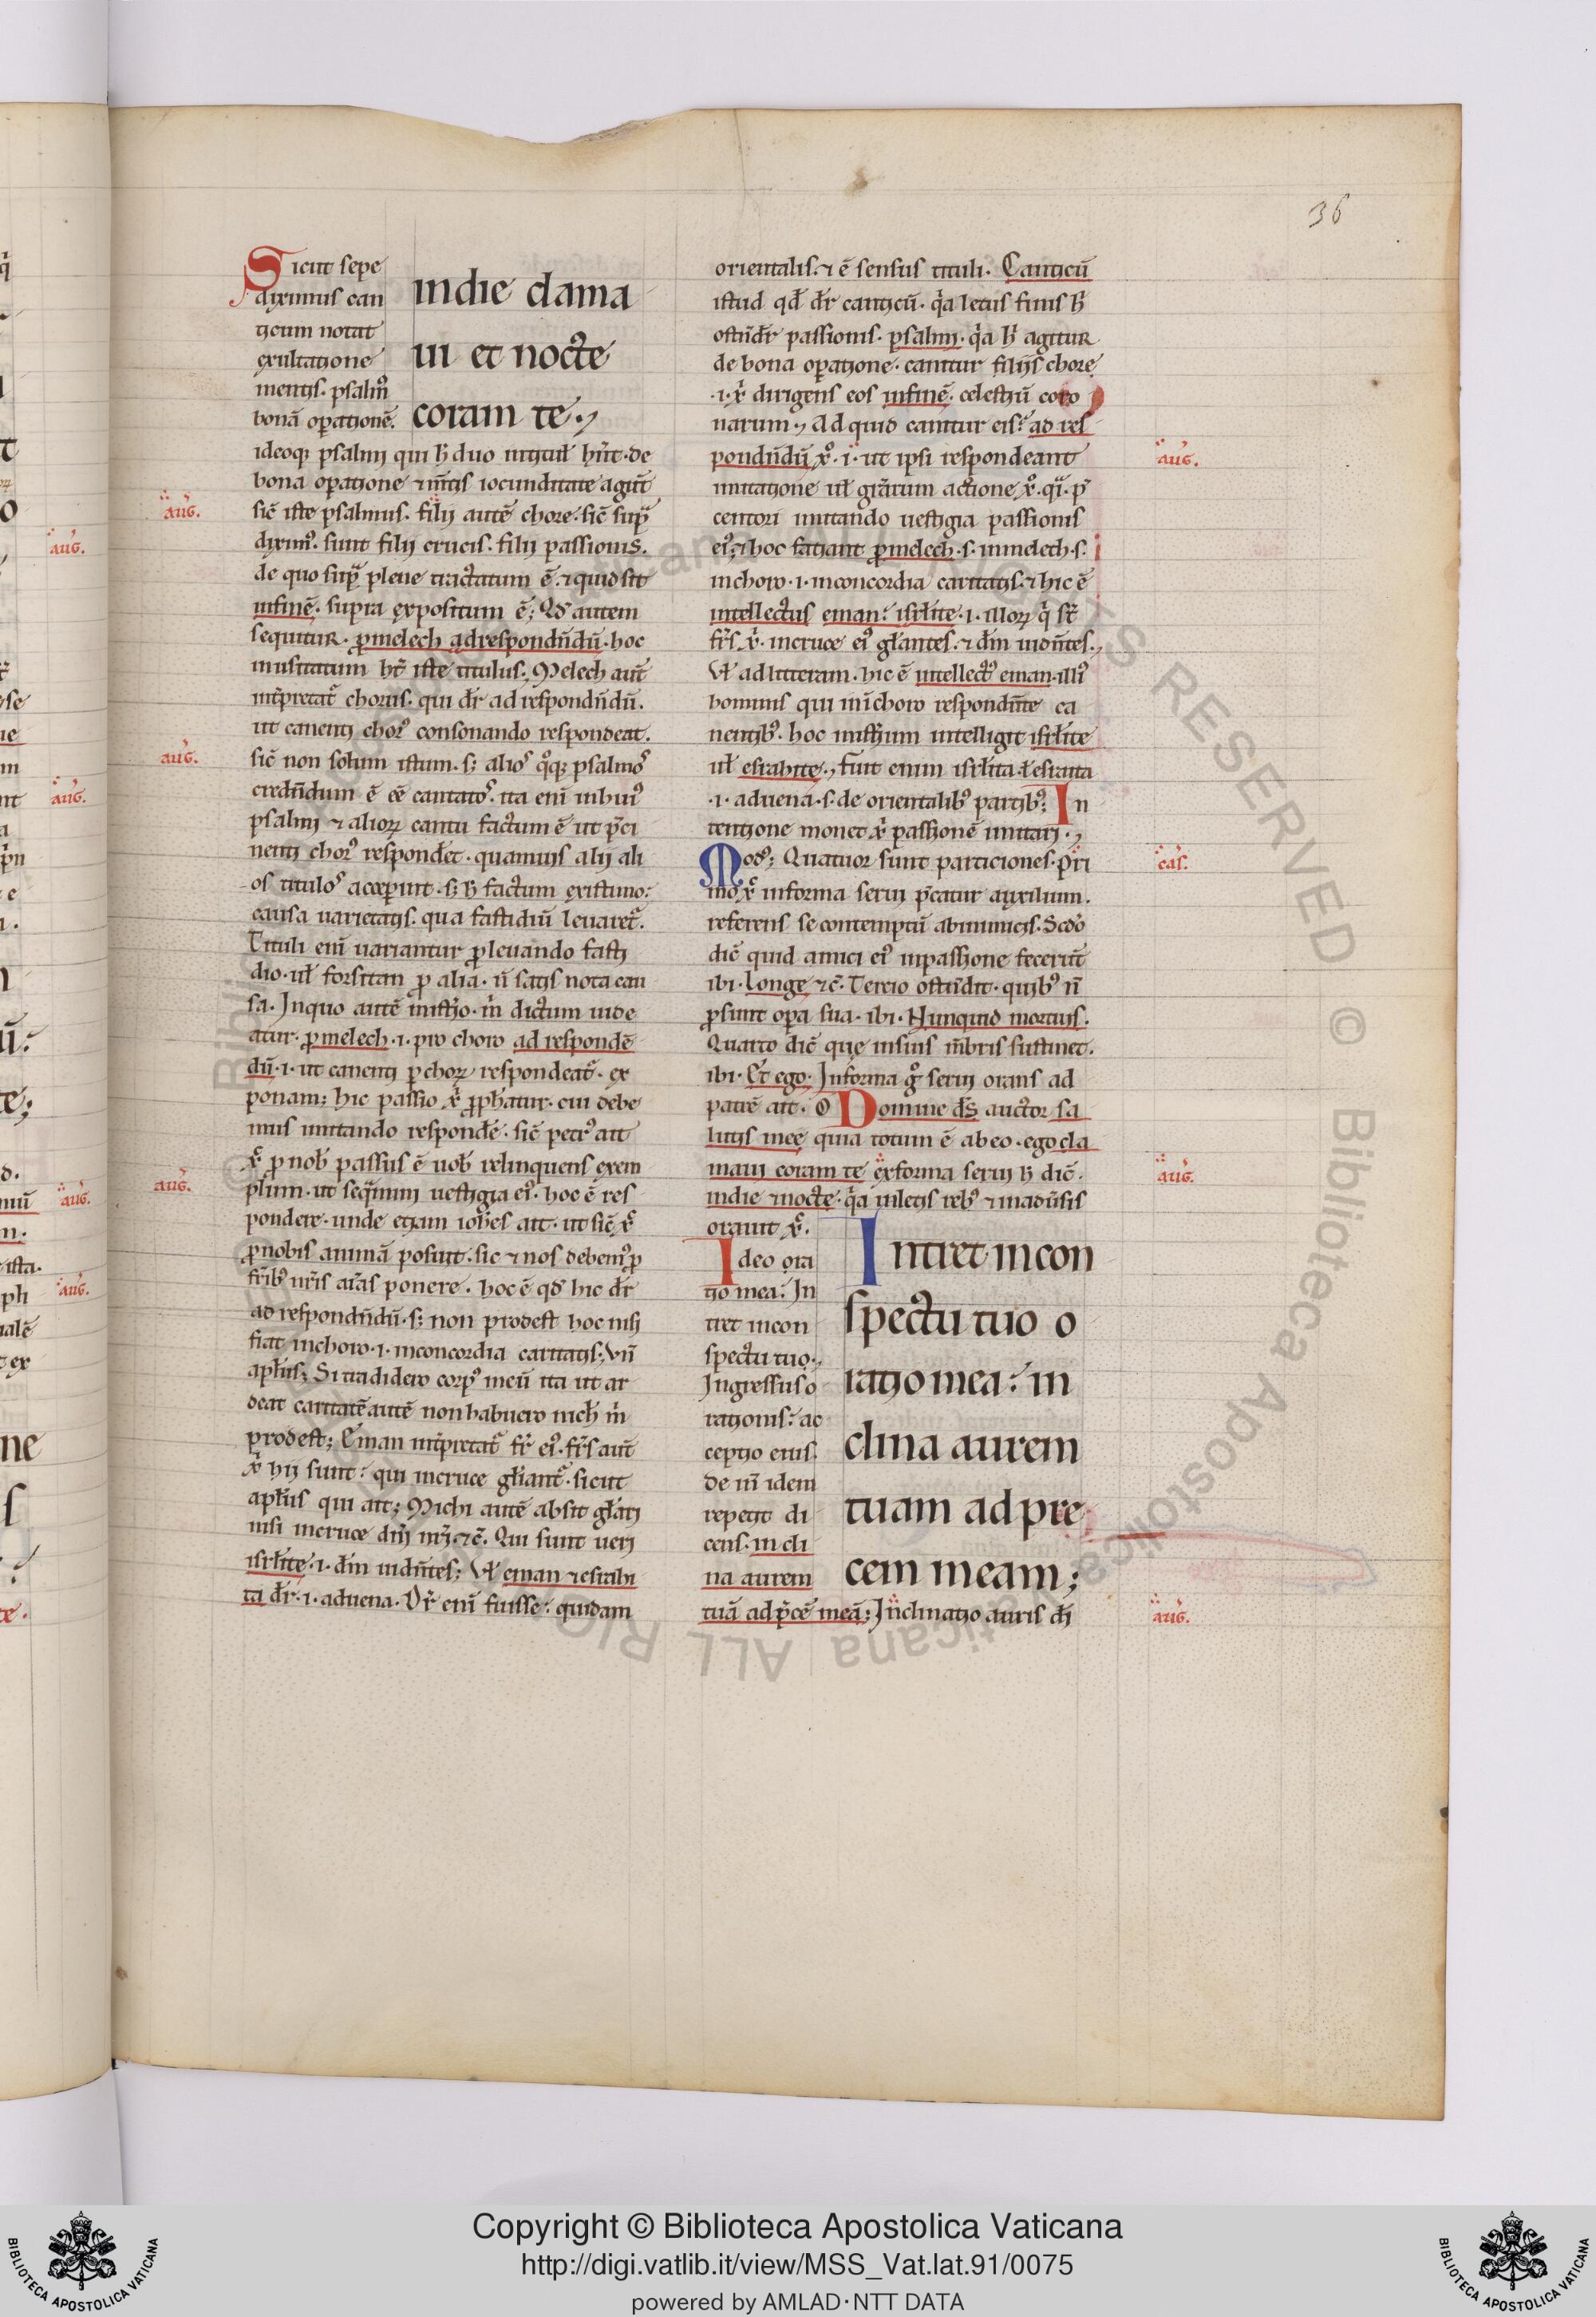 36
Sicut sepe
diximus can
ticum notat
exultatione
mentis. psalm᷒
bonā op̄ationē.
in die clama
ui et nocte
coram te.
ideoq; psalmi qui h̄ duo in titul̄ hn̄t. de
bona op̄atione ⁊ m̄tis iocunditate agūt
sic̄ iste psalmus. filii autē chore. sic̄ sup̄
dixim᷒. sunt filii crucis. filii passionis.
de quo sup̄ plene tractatum ē. ⁊ quid sit
in finē. supra expositum ē; Qd̄ autem
sequitur. p̄ melech ad respondn̄dū. hoc
inusitatum ht̄ iste titulus; Melech aut̄
int̄pretat᷑ chorus. qui dr̄ ad respondn̄dū.
ut canenti chor᷒ consonando respondeat.
sic̄ non solum istum. s; alios q᷒q; psalmos
credn̄dum ē eē cantatos. ita enī in hui᷒
psalmi ⁊ alioꝝ cantu factum ē ut p̄ci
nenti chor᷒ respondet. quamuis alii ali
os titulos acceperunt. s; h̄ factum existimo:
causa uarietatis. qua fastidiū leuaret᷑.
Tituli enī uariantur p̄ leuando fasti
dio. ul̄ forsitan p̄ alia. n̄ satis nota cau
sa. In quo autē mist̄io. m̄ dictum uide
atur. p̄ melech. i. pro choro ad respondē
dū. i. ut canenti p̄ choꝝ respondeat᷑. ex
ponam; hic passio xp̄i p̄ph̄atur. cui debe
mus imitando respondē. sic̄ petr᷒ ait
xp̄c p̄ nob̄ passus ē uob̄ relinquens exem
plum. ut seq̄mini uestigia ei᷒. hoc ē res
pondere. unde etiam ioh̄es ait. ut sic̄ xp̄c
p̄ nobis animā posuit. sic ⁊ nos debem᷒ p̄
fr̄ib᷒ nr̄is aīas ponere. hoc ē qd̄ hic dr̄
ad respondn̄dū. s; non prodest hoc nisi
fiat in choro. i. in concordia caritatis; Vn̄
apl̄us; Si tradidero corp᷒ meū ita ut ar
deat caritatē autē non habuero nich̄ m̄
prodest; Eman int̄pretat᷑ fr̄ ei᷒. fr̄s aut̄
xp̄i hii sunt: qui in cruce gl̄iant᷑. sicut
apl̄us qui ait; Michi autē absit gl̄ari
nisi in cruce dn̄i nr̄i. ⁊c̄. Qui sunt ueri
isrl̄ite. i. dm̄ uidn̄tes; Vl̄ eman ⁊ esrahi
ta dr̄. i. aduena. Dr̄ enī fuisse: quidam
orientalis. ⁊ ē sensus tituli. Canticū
istud qd̄ dr̄ canticū. q̄a letus finis h̄
ostn̄dr̄ passionis. psalmi. q̄a h̄ agitur
de bona op̄atione. canitur filiis chore
.i. xp̄c dirigens eos in finē. celestiū coro
narum. Ad quid canitur eis: ad res
pondn̄dū xp̄o. i. ut ipsi respondeant
imitatione ul̄ gr̄arum actione xp̄o. q̄i. p̄
centori imitando uestigia passionis
ei᷒. ⁊ hoc faciant p̄ melech. s. in melech. s.
in choro. i. in concordia caritatis. ⁊ hic ē
intellectus eman: isrl̄ite. i. illoꝝ q̄i st̄
fr̄s xp̄i. in cruce ei᷒ gl̄antes. ⁊ dm̄ uidn̄tes.
Vl̄ ad litteram. hic ē intellect᷒ eman. illi᷒
hominis qui in choro respondn̄te ca
nentib᷒. hoc misterium intelligit isrl̄ite
ul̄ esrahite. fuit enim isrl̄ita. ł esraita
.i. aduena. s. de orientalib᷒ partib᷒; In
tentione monet xp̄i passionē imitari.
Mod᷒; Quatuor sunt particiones. Pri
mo xp̄c in forma serui p̄catur auxilium.
referens se contemptū ab inimicis. Scdō
dic̄ quid amici ei᷒ in passione fecerūt
ibi. Longe ⁊c̄. Tercio ostn̄dit. quib᷒ n̄
p̄sunt op̄a sua. ibi. Nunquid mortuis.
Quarto dic̄ que in suis m̄bris sustinet.
ibi. Et ego. In forma g᷒ serui orans ad
patrē ait. O Domine ds̄ auctor sa
lutis mee quia totum ē ab eo. ego cla
maui coram te ex forma serui h̄ dic̄.
in die ⁊ nocte. q̄a in letis reb᷒ ⁊ in adūsis
orauit xp̄c.
Ideo ora
tio mea: In
tret in con
spectu tuo.
Ingressus o
rationis: ac
ceptio eius.
de n̄ idem
repetit di
cens. incli
na aurem
Intret in con
spectu tuo o
ratio mea: in
clina aurem
tuam ad pre
cem meam;
tuā ad p̄cē meā; Inclinatio auris dī
aug.
aug.
aug.
aug.
cas.
aug.
aug.
Copyright © Biblioteca Apostolica Vaticana
http://digi.vatlib.it/view/MSS_Vat.lat.91/0075
powered by AMLAD·NTT DATA
BIBLIOTECA APOSTOLICA VATICANA
BIBLIOTECA APOSTOLICA VATICANA